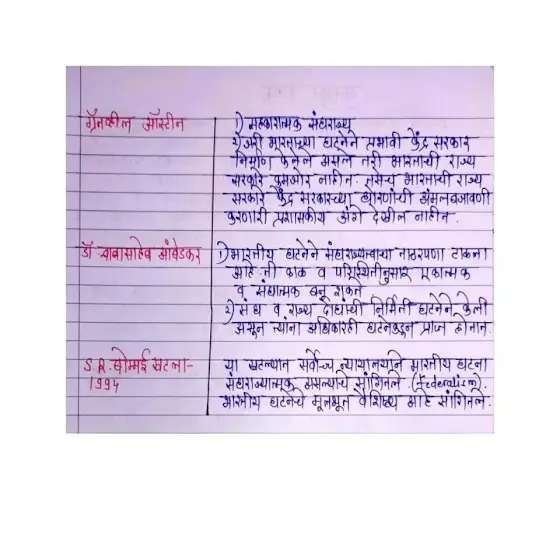 ग्रॅनव्हील ऑस्टीन
1) सहकारात्मक संघराज्य
2) जरी भारताच्या घटनेने प्रभावी केंद्र सरकार
निर्माण केलेले असले तरी भारताची राज्य
सरकारे कुमजोर नाहीत. तसेच भारताची राज्य
सरकारे केंद्र सरकारच्या धोरणांची अंमलबजावणी
करणारी प्रशासकीय अंगे देखील नाहीत.
डॉ बाबासाहेब आंबेडकर
1) भारतीय घटनेने संघराज्यत्वाचा ताठरपणा टाकला
आहे. ती काळ व परिस्थितीनुसार एकात्मक
व संघात्मक बनू शकते
2) संघ व राज्य दोघांची निर्मिती घटनेने केली
असून त्यांना अधिकारही घटनेकडून प्राप्त होतात.
S.R. बोम्मई खटला-
1994
या खटल्यात सर्वोच्च न्यायालयाने भारतीय घटना
संघराज्यात्मक असल्याचे सांगितले. (Federalism).
भारतीय घटनेचे मूलभूत वैशिष्ट्य आहे सांगितले.